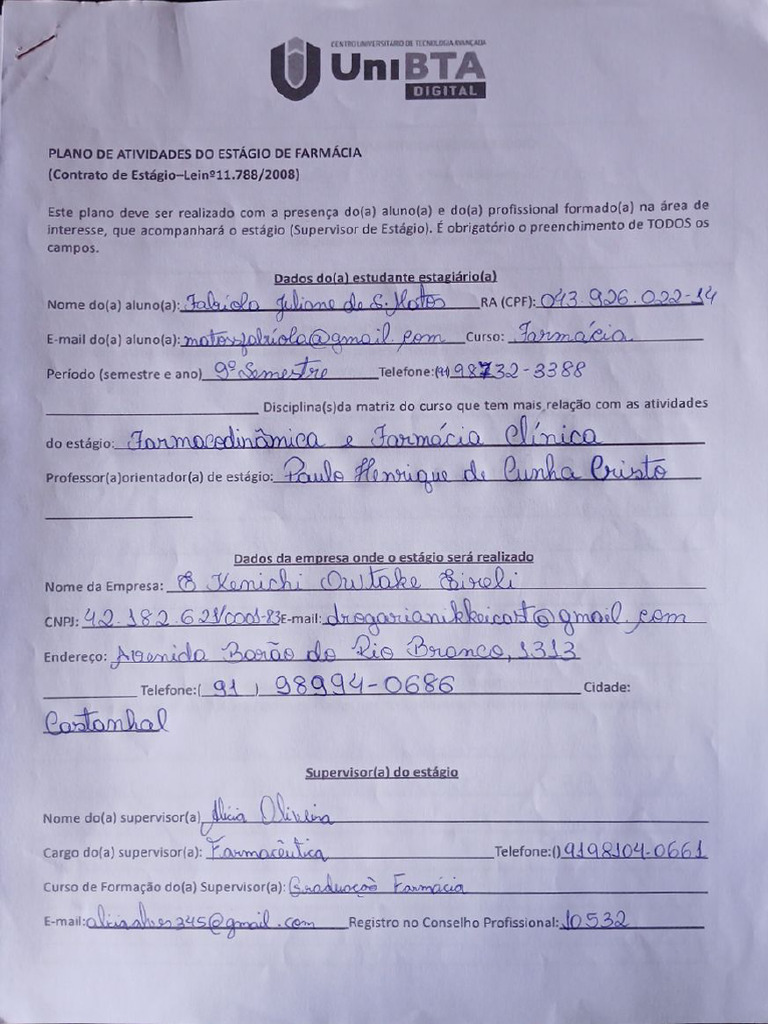 CENTRO UNIVERSITÁRIO DE TECNOLOGIA AVANÇADA
UniBTA
DIGITAL
PLANO DE ATIVIDADES DO ESTÁGIO DE FARMÁCIA
(Contrato de Estágio–Leinº11.788/2008)
Este plano deve ser realizado com a presença do(a) aluno(a) e do(a) profissional formado(a) na área de
interesse, que acompanhará o estágio (Supervisor de Estágio). É obrigatório o preenchimento de TODOS os
campos.
Dados do(a) estudante estagiário(a)
Nome do(a) aluno(a): Fabiola Juliane de S. Matos RA (CPF): 043.926.022-14
E-mail do(a) aluno(a): matossfabiola@gmail.com Curso: Farmácia
Período (semestre e ano) 9º Semestre Telefone:(91) 98732-3388
Disciplina(s)da matriz do curso que tem mais relação com as atividades
do estágio: Farmacodinâmica e Farmácia Clínica
Professor(a)orientador(a) de estágio: Paulo Henrique de Cunha Cristo
Dados da empresa onde o estágio será realizado
Nome da Empresa: E Kenichi Owtake Eireli
CNPJ: 42.182.621/0001-83 E-mail: drogarianikkeicast@gmail.com
Endereço: Avenida Barão do Rio Branco, 1313
Telefone:( 91 ) 98994-0686 Cidade:
Castanhal
Supervisor(a) do estágio
Nome do(a) supervisor(a) Alicia Oliveira
Cargo do(a) supervisor(a): Farmacêutica Telefone:() 9198104-0661
Curso de Formação do(a) Supervisor(a): Graduação Farmácia
E-mail: aliciaalves345@gmail.com Registro no Conselho Profissional: 10532